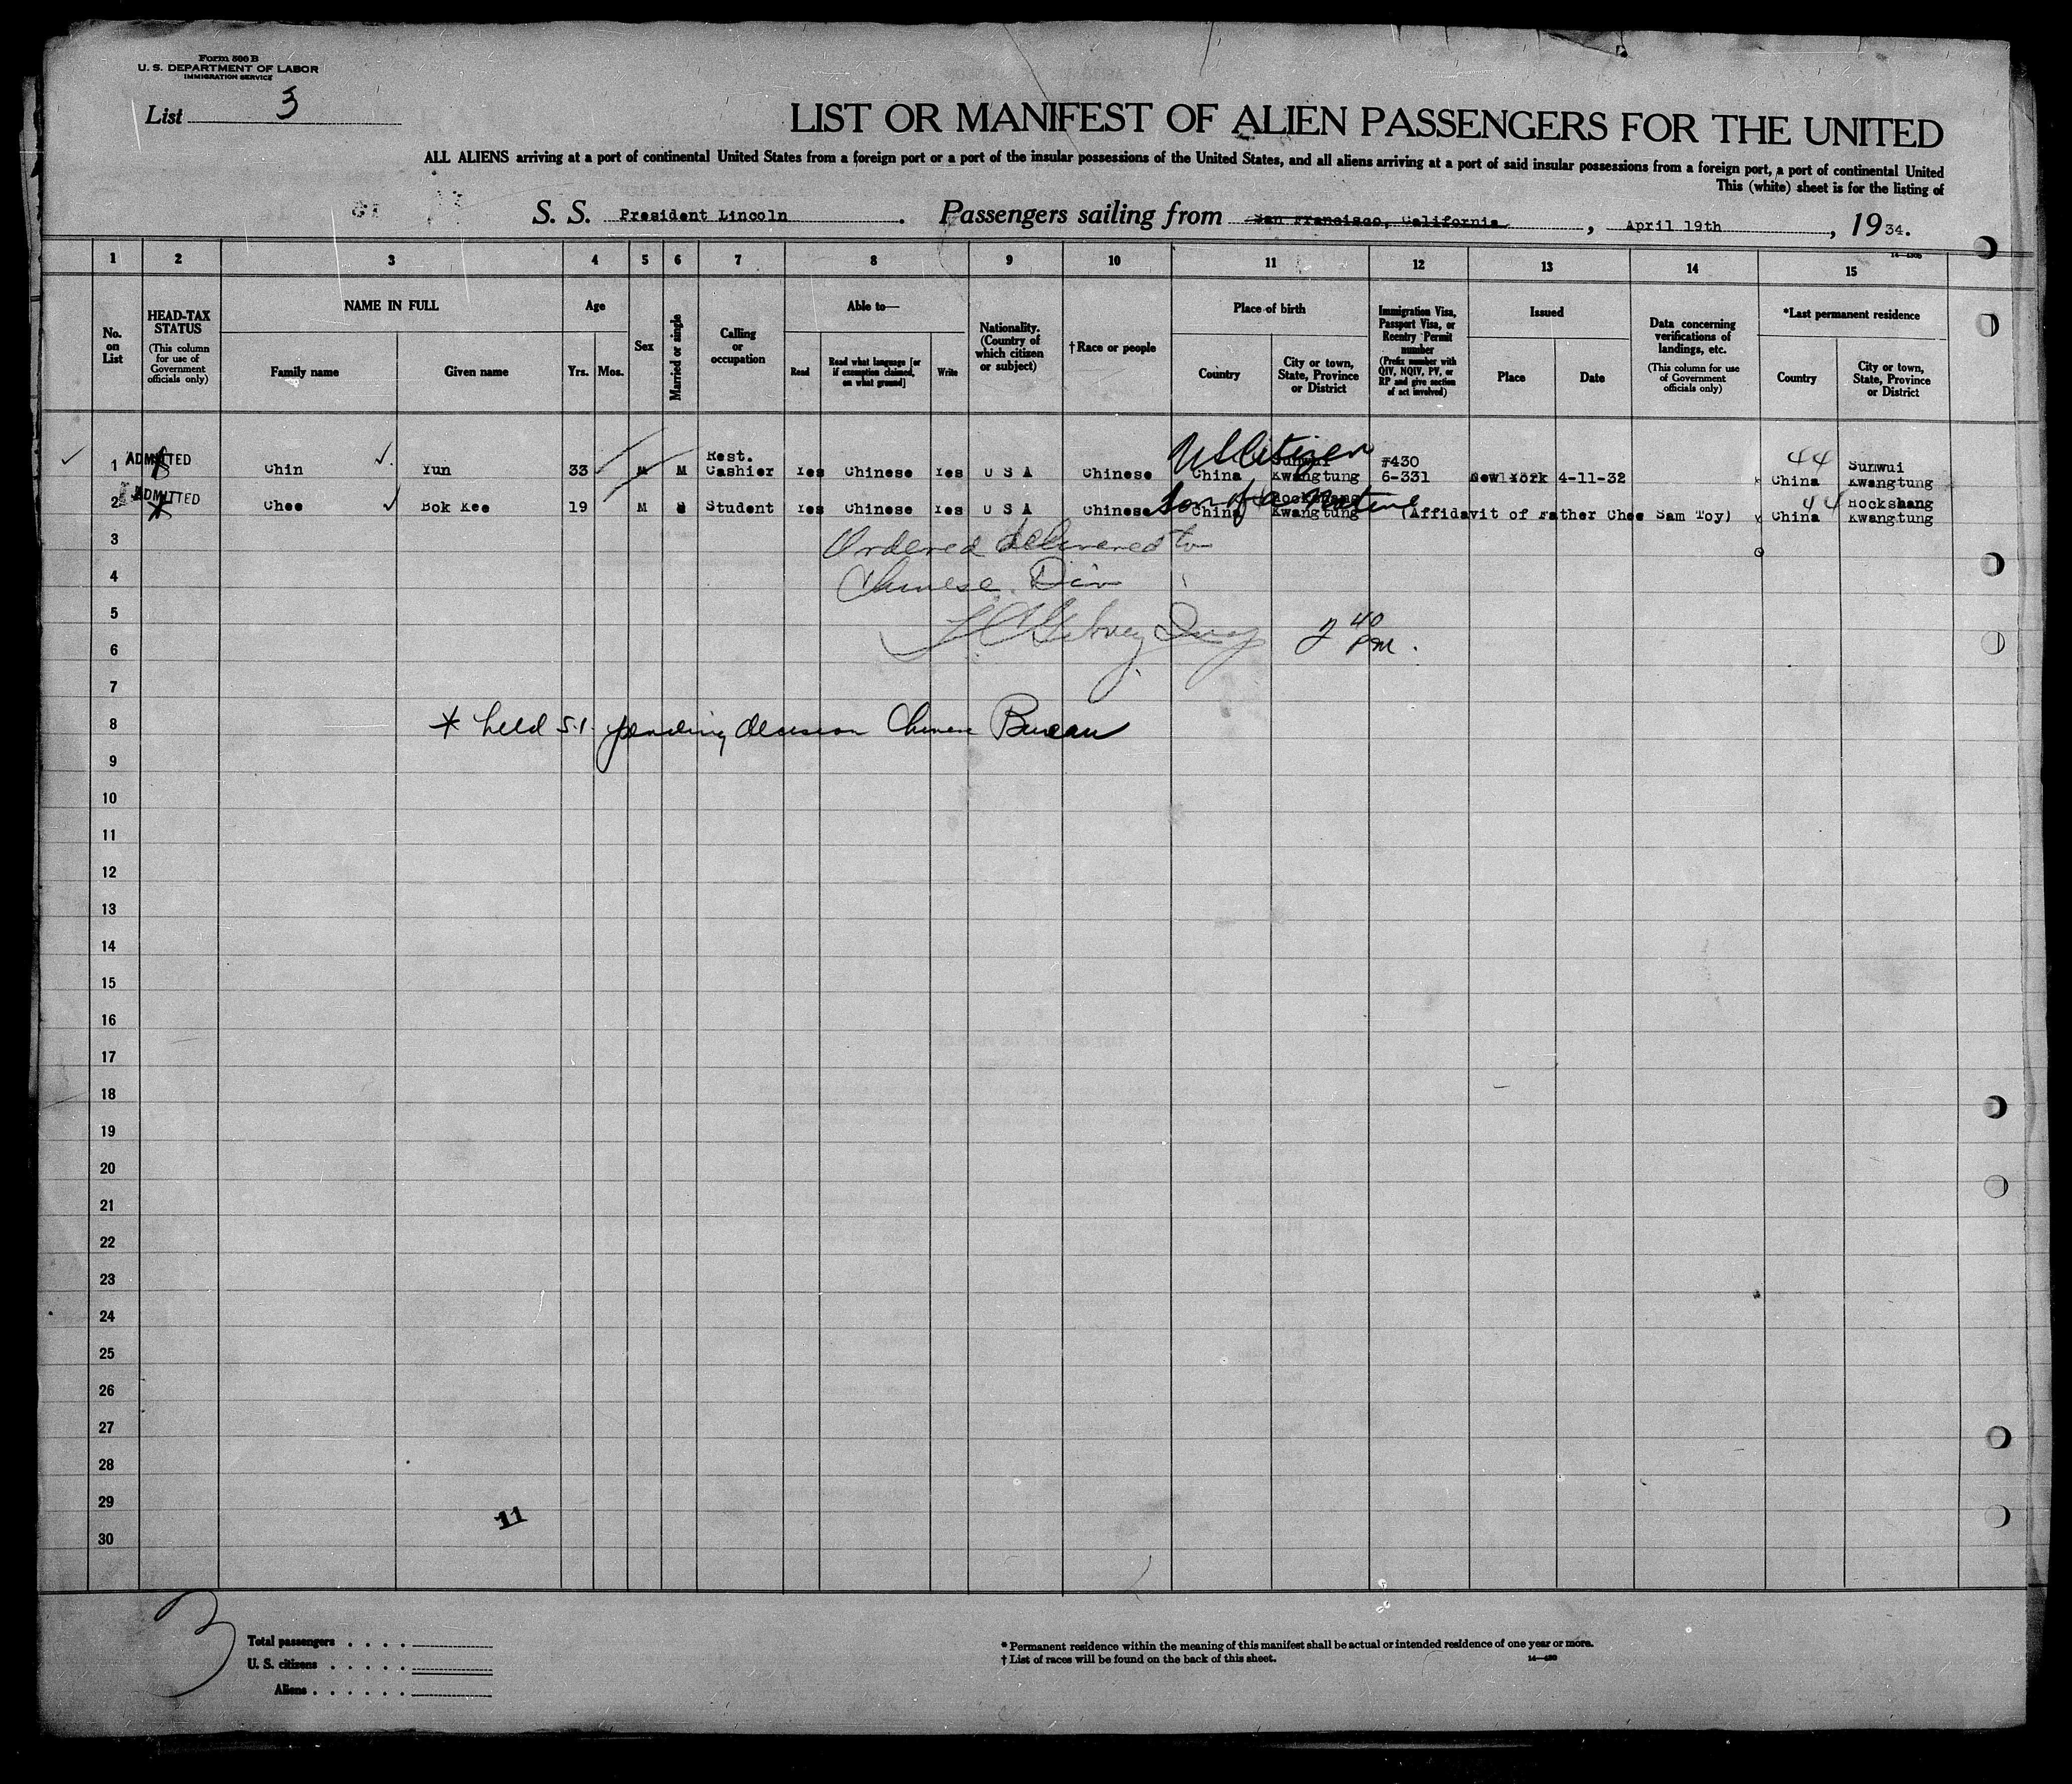 Form 500 B
U. S. DEPARTMENT OF LABOR
IMMIGRATION SERVICE
List 3
LIST OR MANIFEST OF ALIEN PASSENGERS FOR THE UNITED
ALL ALIENS arriving at a port of continental United States from a foreign port or a port of the insular possessions of the United States, and all aliens arriving at a port of said insular possessions from a foreign port, a port of continental United
This (white) sheet is for the listing of
S. S. President Lincoln. Passengers sailing from San Francisco, California, April 19th, 1934.
1 2 3 4 5 6 7 8 9 10 11 12 13 14 15
No. on List
HEAD-TAX STATUS
(This column for use of Government officials only)
NAME IN FULL
Family name Given name
Age
Yrs. Mos.
Sex
Married or single
Calling or occupation
Able to—
Read Read what language [or if exemption claimed, on what ground] Write
Nationality. (Country of which citizen or subject)
†Race or people
Place of birth
Country City or town, State, Province or District
Immigration Visa, Passport Visa, or Reentry Permit number
(Prefix number with QIV, NQIV, PV, or RP and give section of act involved)
Issued
Place Date
Data concerning verifications of landings, etc.
(This column for use of Government officials only)
*Last permanent residence
Country City or town, State, Province or District
US Citizen
ADMITTED Rest. Sunwui 7430 44 Sunwui
1 Chin Yun 33 M M Cashier Yes Chinese Yes U S A Chinese China Kwangtung 6-331 New York 4-11-32 China Kwangtung
ADMITTED son of a native Hockshang 44 Hockshang
2 Chee Bok Kee 19 M S Student Yes Chinese Yes U S A Chinese China Kwangtung (Affidavit of Father Chee Sam Toy) China Kwangtung
3 Ordered delivered to
4 Chinese Div
5
6 2 40 PM.
7
8 * held S.I. pending decision Chinese Bureau
9
10
11
12
13
14
15
16
17
18
19
20
21
22
23
24
25
26
27
28
29
11
30
3
Total passengers . . . .
U. S. citizens . . . . .
Aliens . . . . . .
* Permanent residence within the meaning of this manifest shall be actual or intended residence of one year or more.
† List of races will be found on the back of this sheet.